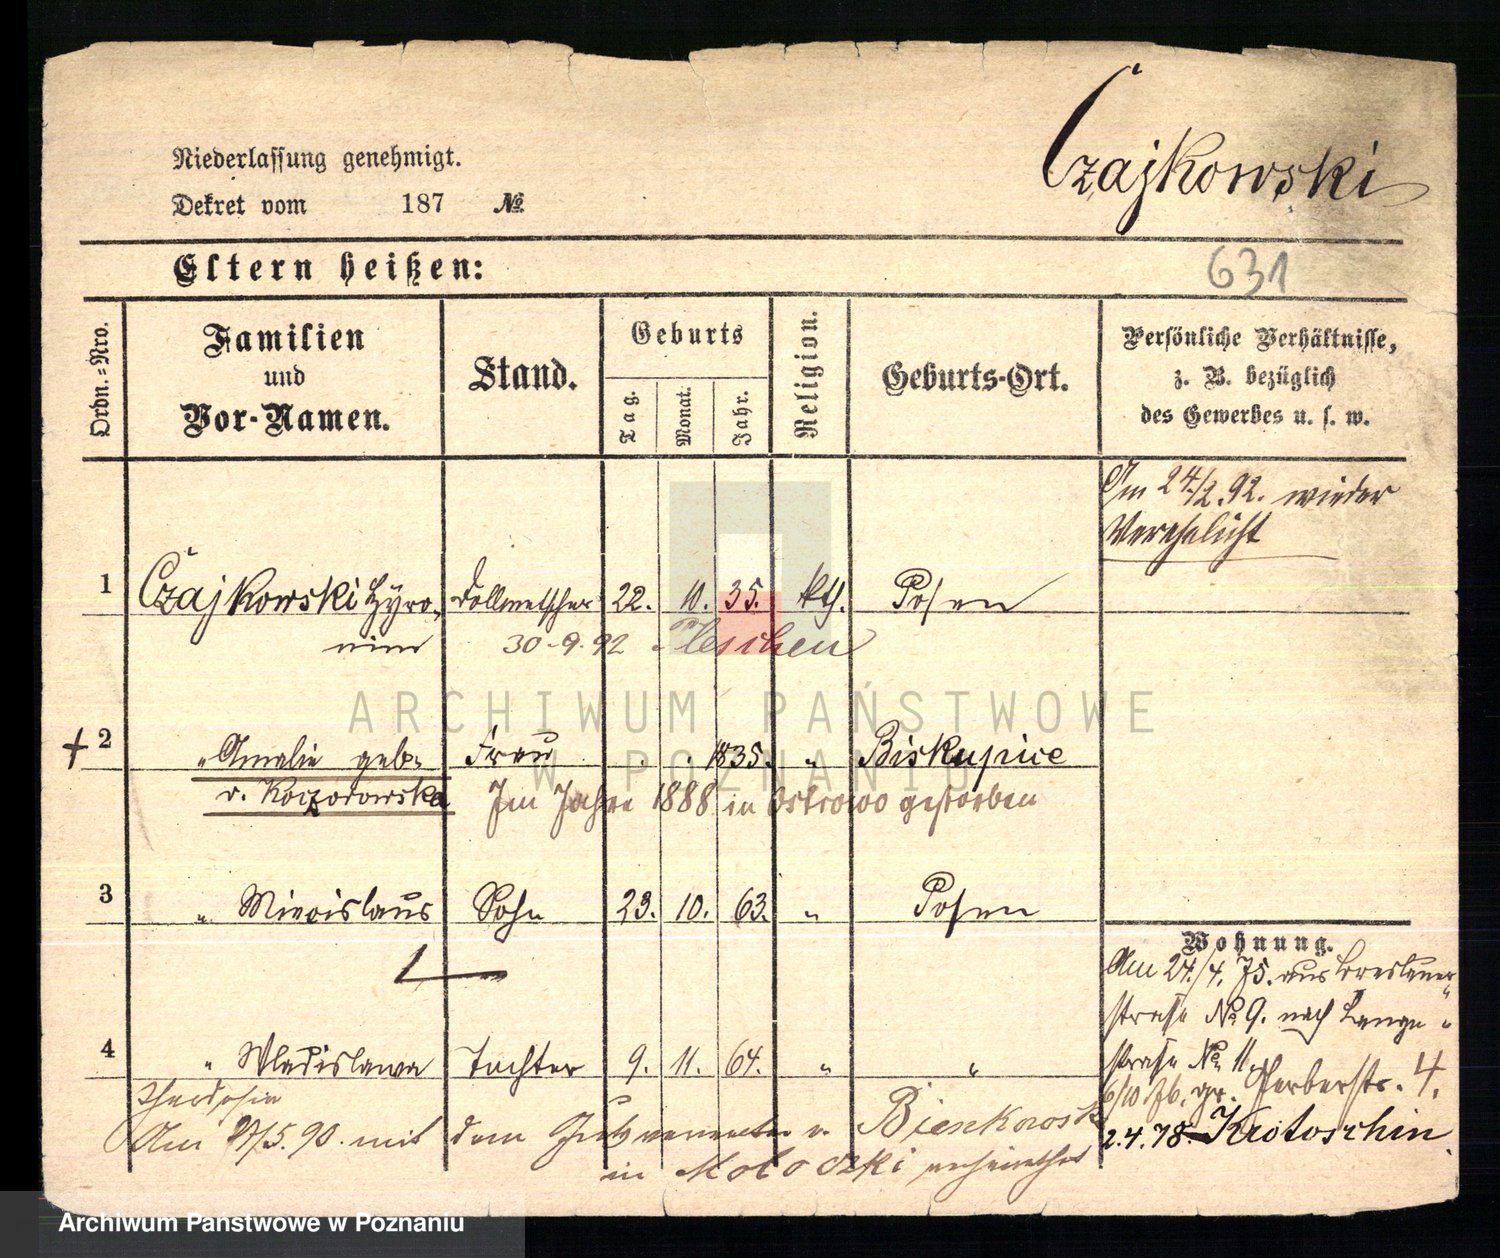 Czajkowski
Niederlassung genehmigt.
Dekret vom 187 №
Eltern heißen:
631
Ordn.=Nro.
Familien
und
Vor-Namen.
Stand.
Geburts
Tag.
Monat.
Jahr.
Religion.
Geburts-Ort.
Persönliche Verhältnisse,
z. B. bezüglich
des Gewerbes u. s. w.
Am 24./2. 92. wieder
Verehelicht
1 Czajkowski Hyro- Dollmetscher 22. 10. 35. kth. Posen
nim 30-9.92 Pleschen
ARCHIWUM PAŃSTWOWE
W POZNANIU
+ 2 „ Amalie geb. Frau . . 1835. „ Biskupice
v. Koczorowska Im Jahre 1888 in Ostrowo gestorben
3 „ Miecislaus Sohn 23. 10. 63. „ Posen
4 „ Wladislawa Tochter 9. 11. 64. „ „
Theodosia
Am 27/5.90. mit dem v. Bienkowski
in verheirathet
Wohnung.
Am 24./4. 75. aus Breslauer
straße № 9. nach Lange
straße № 11.
6/10 76. gr. Gerberstr. 4.
2.4.78 Krotoschin
Archiwum Państwowe w Poznaniu